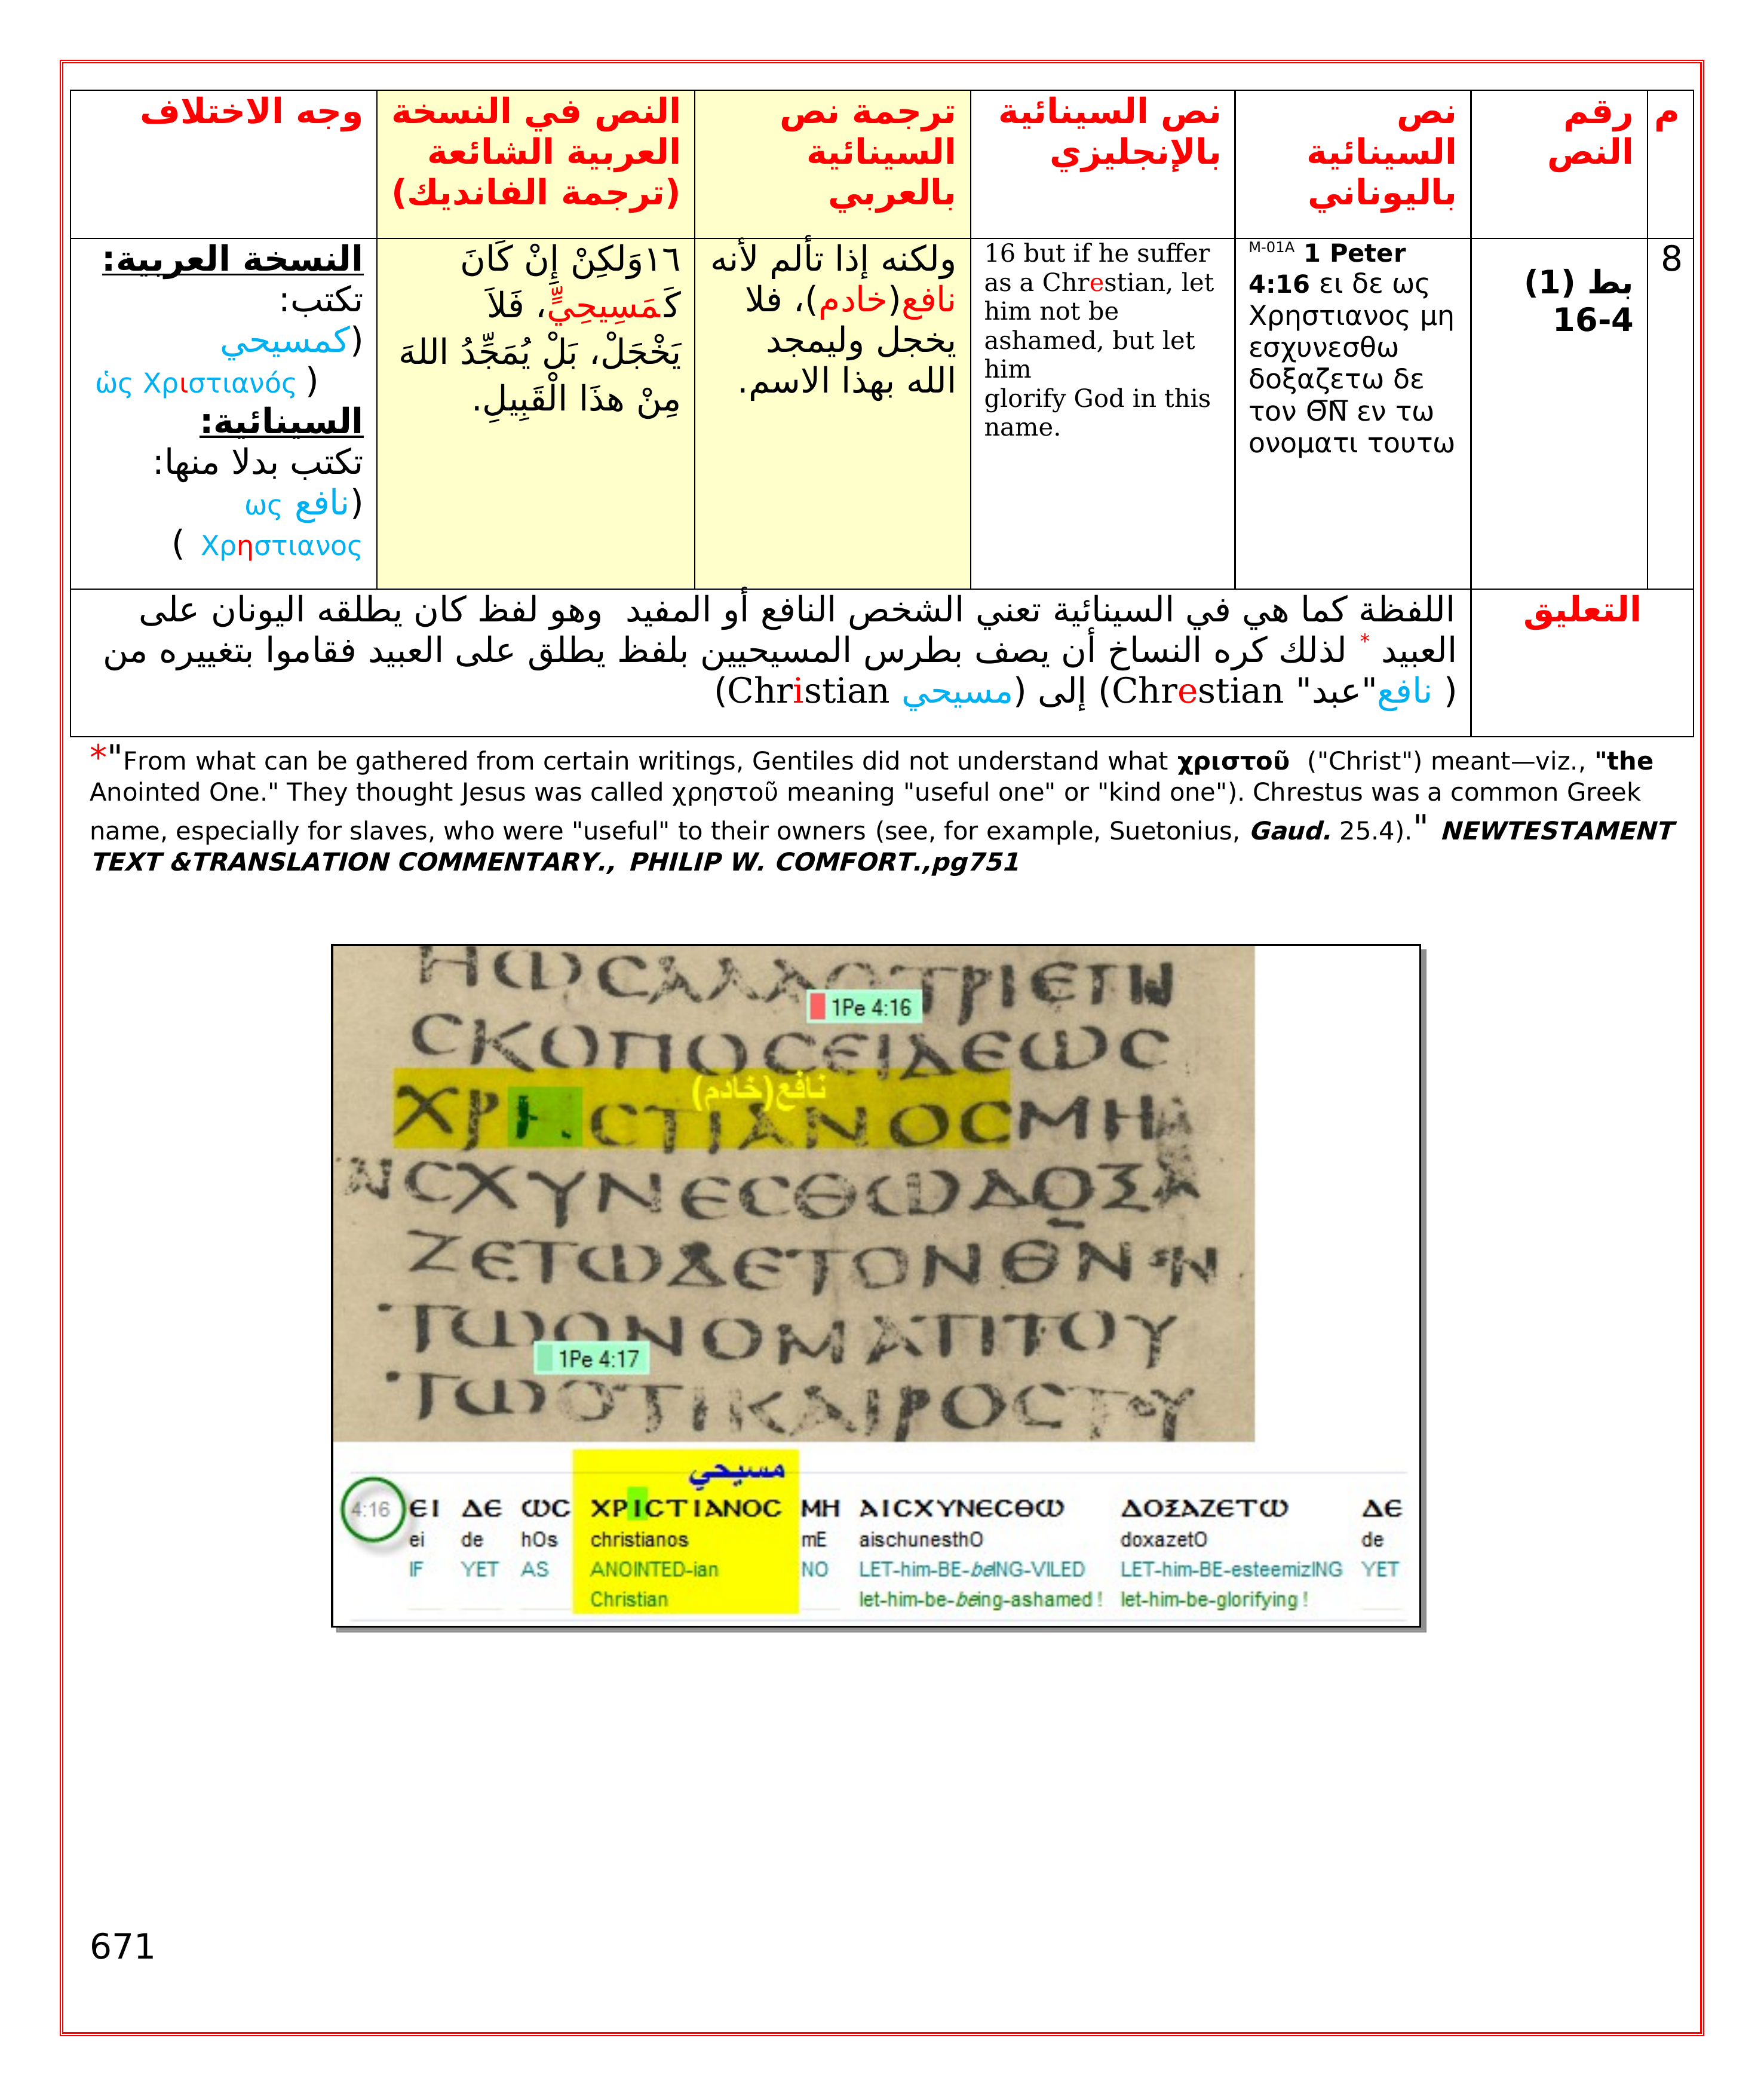 م
رقم
النص
نص
السينائية
باليوناني
نص السينائية
بالإنجليزي
ترجمة نص
السينائية
بالعربي
النص في النسخة
العربية الشائعة
(ترجمة الفانديك)
وجه الاختلاف
8
بط (1)
16-4
M-01A 1 Peter
4:16 ει δε ως
Χρηστιανος μη
εσχυνεσθω
δοξαζετω δε
τον Θ̅Ν̅ εν τω
ονοματι τουτω
16 but if he suffer
as a Chrestian, let
him not be
ashamed, but let
him
glorify God in this
name.
ولكنه إذا تألم لأنه
نافع(خادم)، فلا
يخجل وليمجد
الله بهذا الاسم.
١٦وَلكِنْ إِنْ كَانَ
كَمَسِيحِيٍّ، فَلاَ
يَخْجَلْ، بَلْ يُمَجِّدُ اللهَ
مِنْ هذَا الْقَبِيلِ.
النسخة العربية:
تكتب:
(كمسيحي
ὡς Χριστιανός )
السينائية:
تكتب بدلا منها:
(نافع ως
Χρηστιανος )
التعليق
اللفظة كما هي في السينائية تعني الشخص النافع أو المفيد وهو لفظ كان يطلقه اليونان على
العبيد * لذلك كره النساخ أن يصف بطرس المسيحيين بلفظ يطلق على العبيد فقاموا بتغييره من
( نافع"عبد" Chrestian) إلى (مسيحي Christian)
*"From what can be gathered from certain writings, Gentiles did not understand what χριστοῦ ("Christ") meant—viz., "the
Anointed One." They thought Jesus was called χρηστοῦ meaning "useful one" or "kind one"). Chrestus was a common Greek
name, especially for slaves, who were "useful" to their owners (see, for example, Suetonius, Gaud. 25.4)." NEWTESTAMENT
TEXT &TRANSLATION COMMENTARY., PHILIP W. COMFORT.,pg751
ΗωϲΑΛΛΟΤΡΙЄΠΙ
1Pe 4:16
ϹΚΟΠΟϹЄΙΔЄωϹ
نافع(خادم)
ΧΡΗϹΤΙΑΝΟϹΜΗ
ϹΧΥΝЄϹΘωΔΟΞΑ
ΖЄΤωΔЄΤΟΝΘΝ
ΤωΟΝΟΜΑΤΙΤΟΥ
1Pe 4:17
ΤωΟΤΙΚΑΙΡΟϹ
مسيحي
4:16 ЄΙ ΔЄ ωϹ ΧΡΙϹΤΙΑΝΟϹ ΜΗ ΑΙϹΧΥΝЄϹΘω ΔΟΞΑΖЄΤω ΔЄ
ei de hOs christianos mE aischunesthO doxazetO de
IF YET AS ANOINTED-ian NO LET-him-BE-beING-VILED LET-him-BE-esteemizING YET
Christian let-him-be-being-ashamed ! let-him-be-glorifying !
671